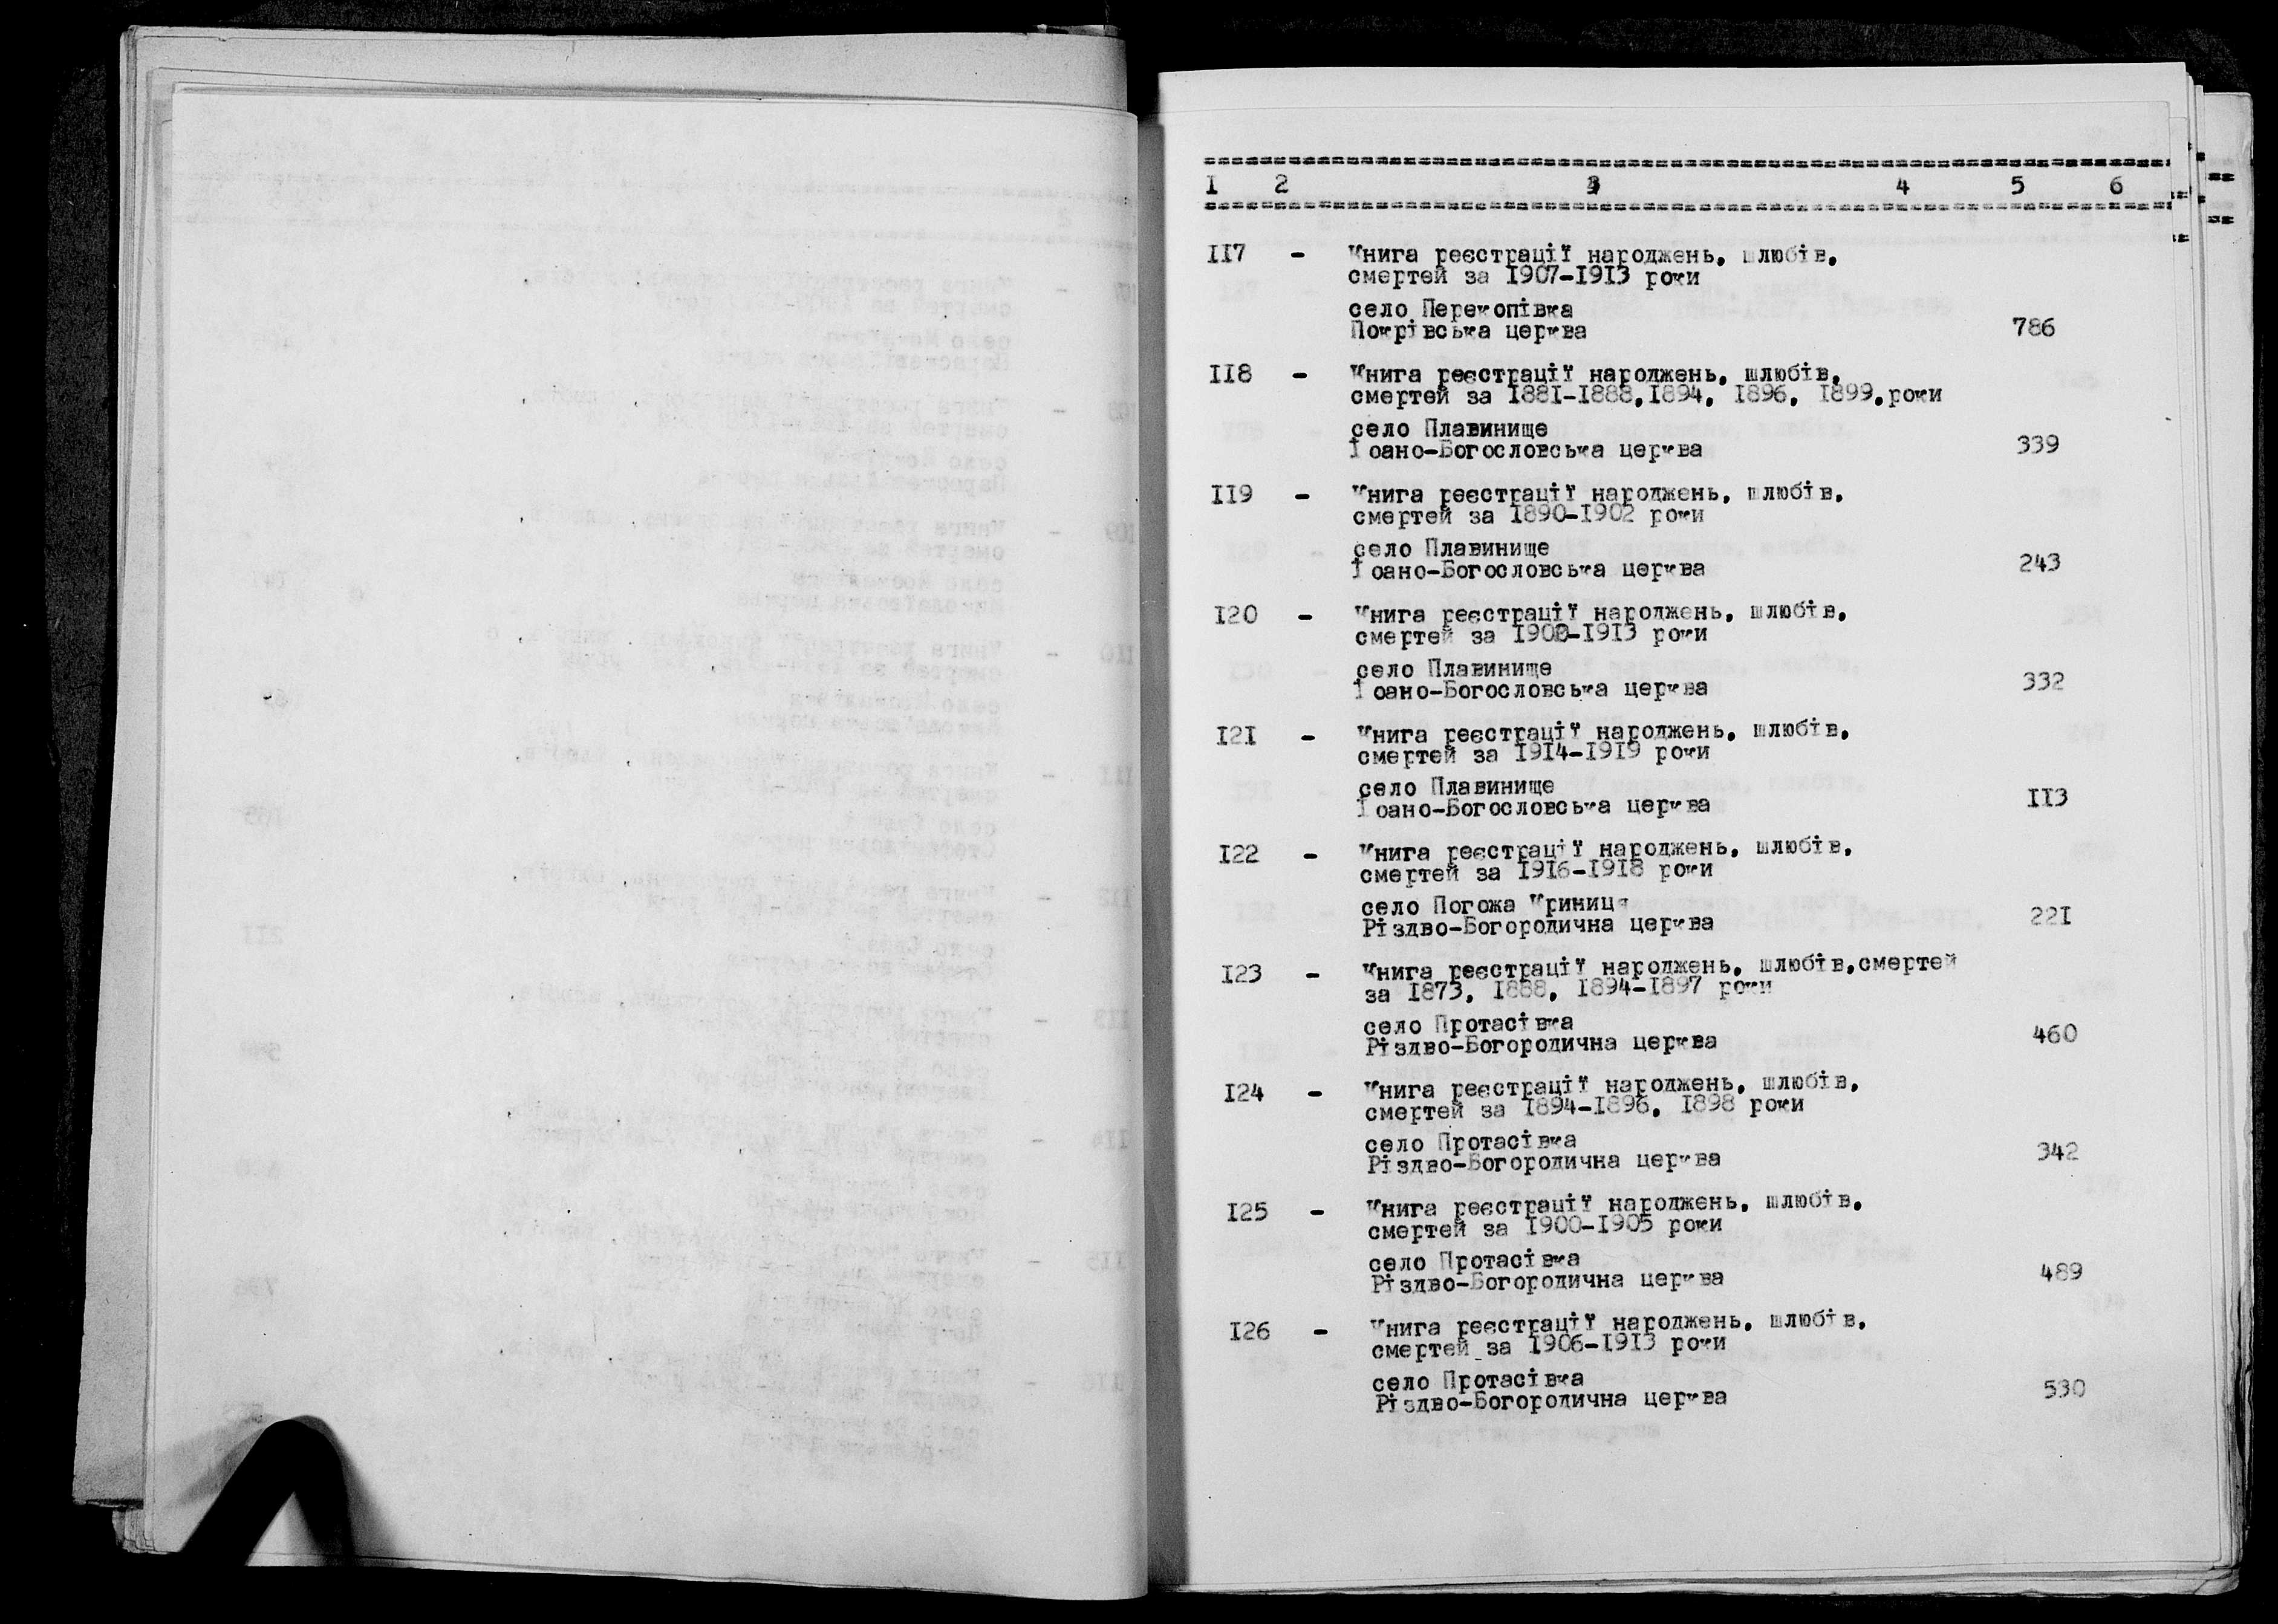 1 2 3 4 5 6
117 - Книга реєстрації народжень, шлюбів,
смертей за 1907-1913 роки
село Перекопівка
Покрівська церква 786
118 - Книга реєстрації народжень, шлюбів,
смертей за 1881-1888,1894, 1896, 1899,роки
село Плавинище
Іоано-Богословська церква 339
119 - Книга реєстрації народжень, шлюбів,
смертей за 1890-1902 роки
село Плавинище
Іоано-Богословська церква 243
120 - Книга реєстрації народжень, шлюбів,
смертей за 1900-1913 роки
село Плавинище
Іоано-Богословська церква 332
121 - Книга реєстрації народжень, шлюбів,
смертей за 1914-1919 роки
село Плавинище
Іоано-Богословська церква 113
122 - Книга реєстрації народжень, шлюбів,
смертей за 1916-1918 роки
село Погожа Криниця
Різдво-Богородична церква 221
123 - Книга реєстрації народжень, шлюбів,смертей
за 1873, 1888, 1894-1897 роки
село Протасівка
Різдво-Богородична церква 460
124 - Книга реєстрації народжень, шлюбів,
смертей за 1894-1896, 1898 роки
село Протасівка
Різдво-Богородична церква 342
125 - Книга реєстрації народжень, шлюбів,
смертей за 1900-1905 роки
село Протасівка
Різдво-Богородична церква 489
126 - Книга реєстрації народжень, шлюбів,
смертей за 1906-1913 роки
село Протасівка
Різдво-Богородична церква 530